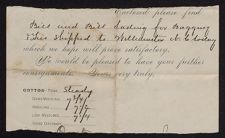 Enclosed please find
Bill and Bill Lading for Bagging
& Ties shipped to Williamston N.C. today
which we hope will prove satisfactory.
We would be pleased to have your further
consignments. Yours very truly,
COTTON—Tone Steady
GOOD MIDDLING
MIDDLING
LOW MIDDLING
GOOD ORDINARY